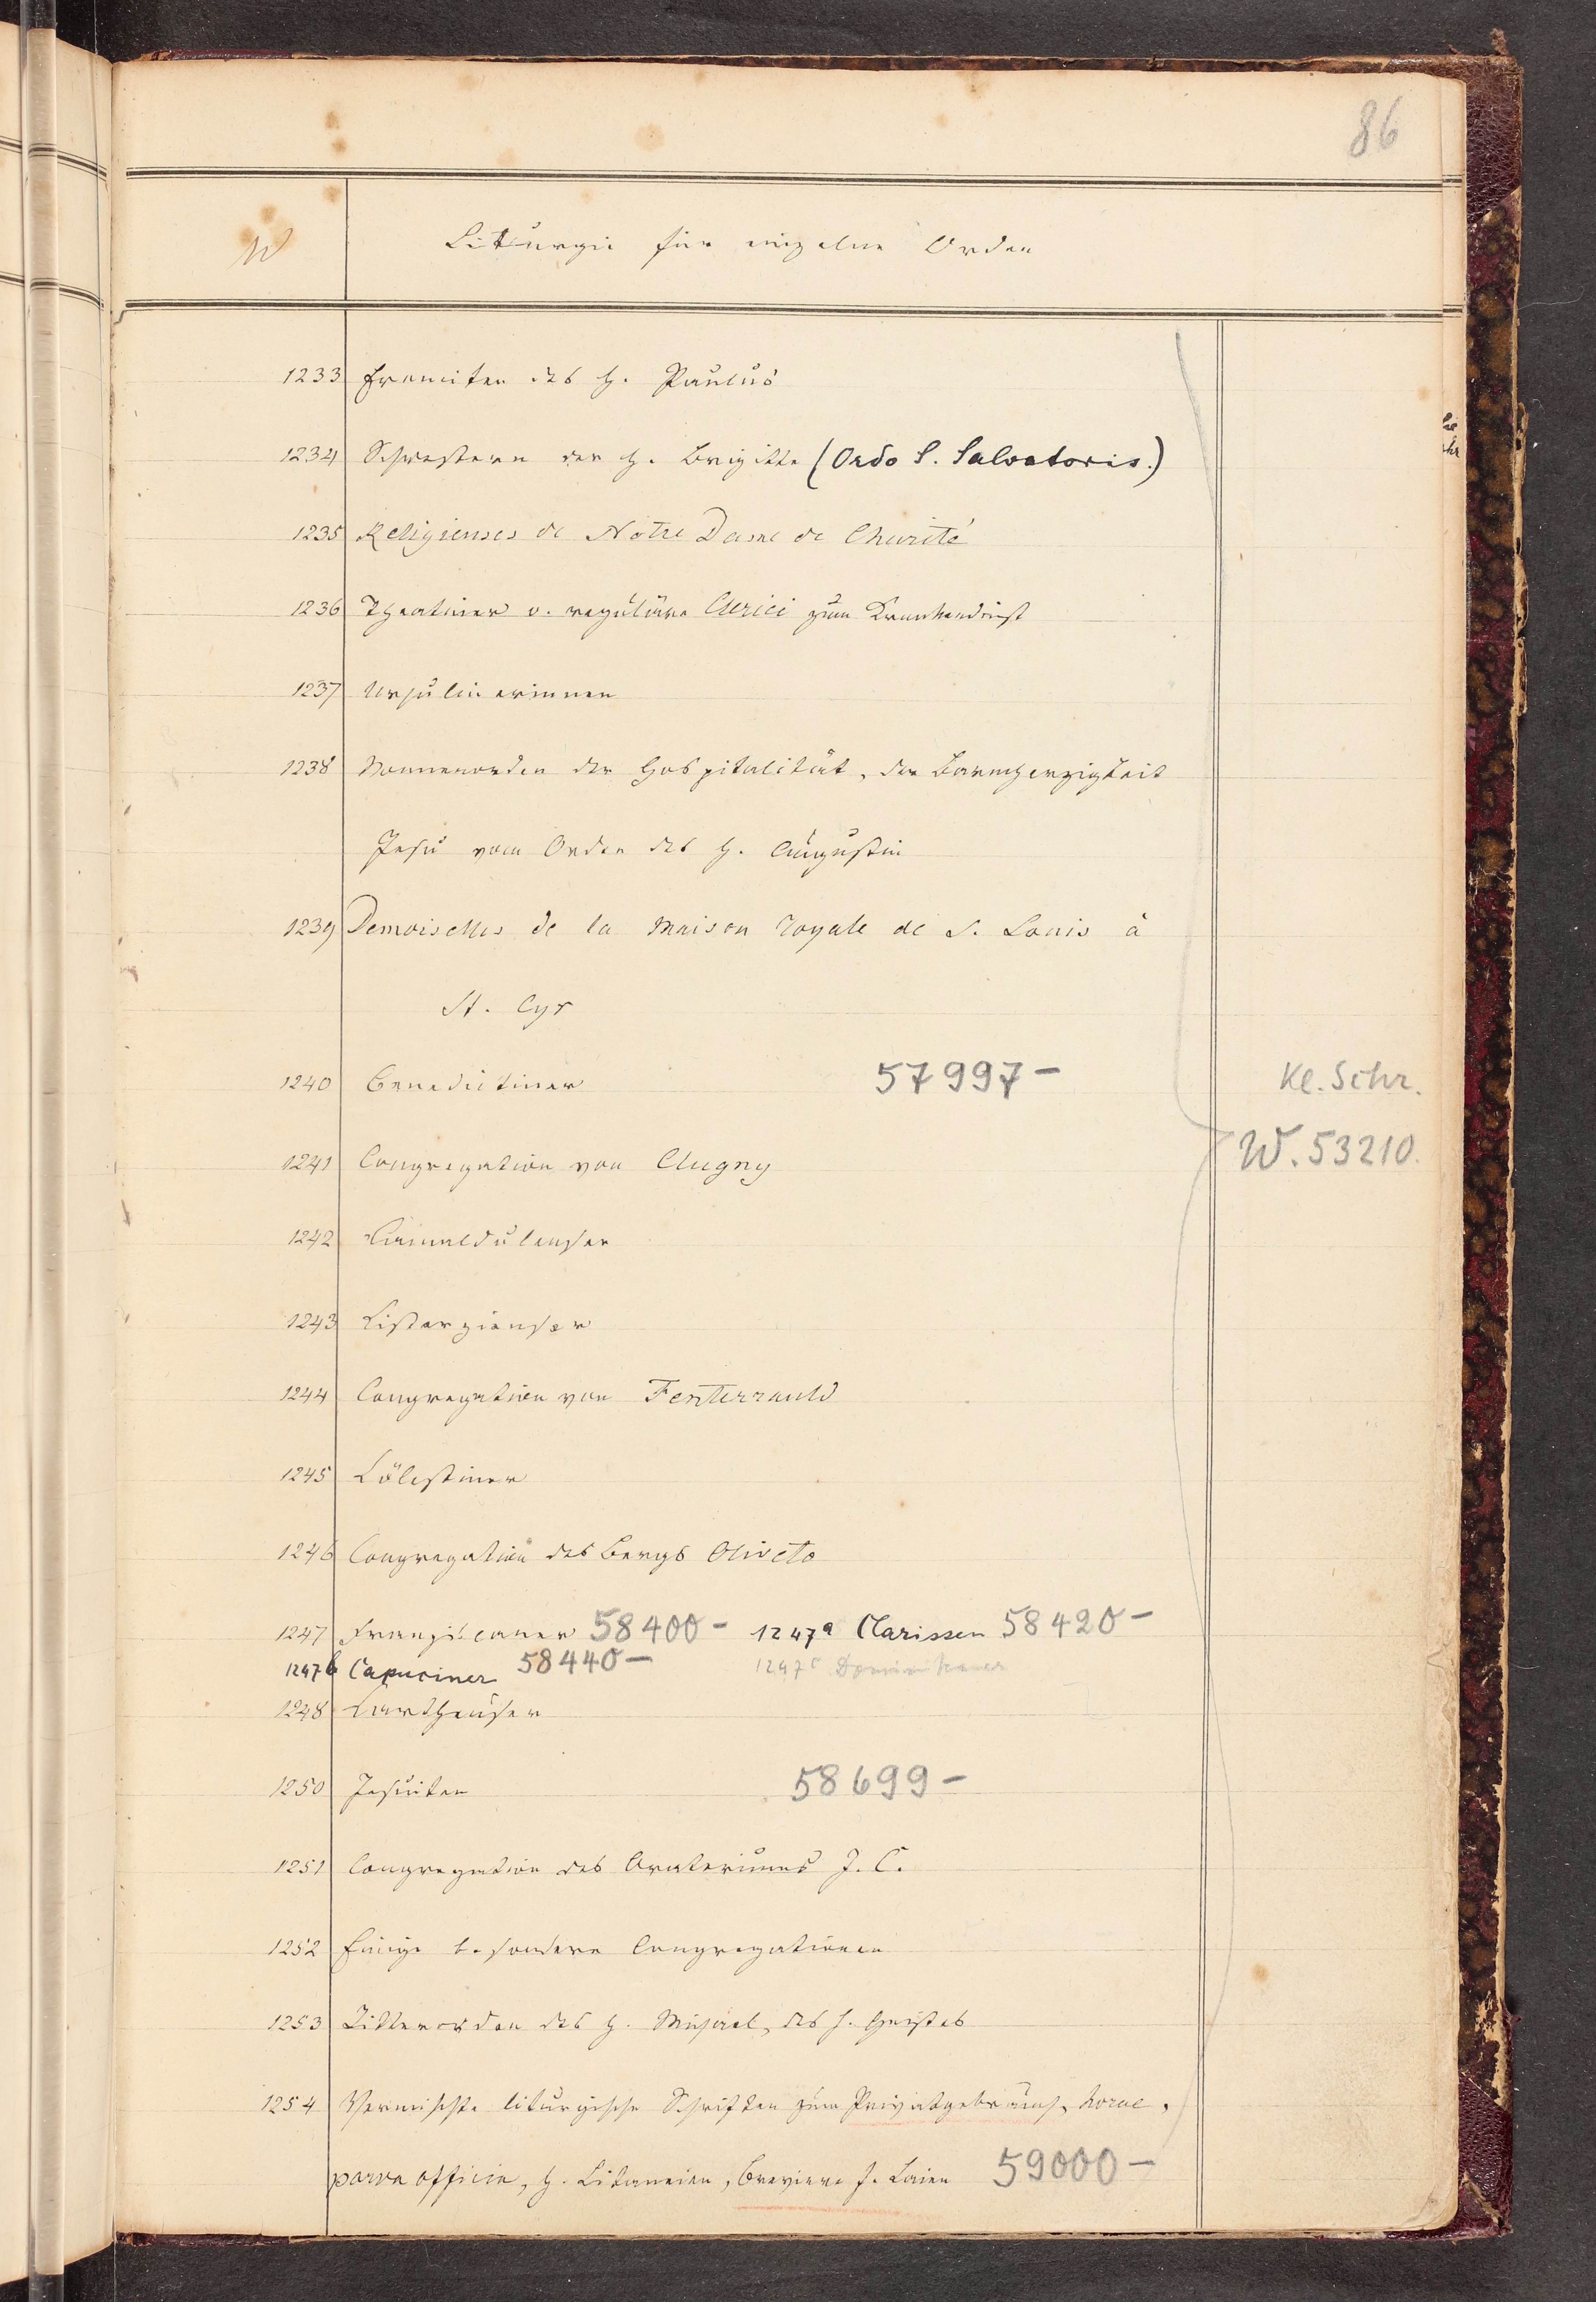 86
W Liturgie für einzelne Orden
1233 Eremiten des h. Paulus
1234 Schwestern der h. Brigitta (Ordo S. Salvatoris.)
1235 Religieuses de Notre Dame de Charité
1236 Theatiner o. reguläre Clerici zum Krankendienst
1237 Ursulinerinnen
1238 Nonnenorden der Hospitalität, der Barmherzigkeit
Jesu vom Orden des h. Augustin
1239 Demoiselles de la Maison royale de S. Louis à
St. Cyr
1240 Benedictiner 57997- Kl. Schr.
1241 Congregation von Clugny W. 53210.
1242 Camaldulenser
1243 Cisterzienser
1244 Congregation von Fenterrauld
1245 Cölestiner
1246 Congregation des Bergs Oliveto
1247 Franziscaner 58400- 1247a Clarissen 58420-
1247b Capuciner 58440- 1247c Dominikaner
1248 Carthäuser
1250 Jesuiten 58699-
1251 Congregation des Oratoriums J. C.
1252 Einige besondere Congregationen
1253 Ritterorden des h. Michael, des h. Geistes
1254 Vermischte liturgische Schriften zum Privatgebrauch, horae,
parva officia, h. Litaneien, Breviere f. Laien 59000-